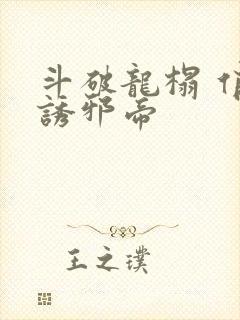 斗破龍榻 俏
誘邪帝
王之璞